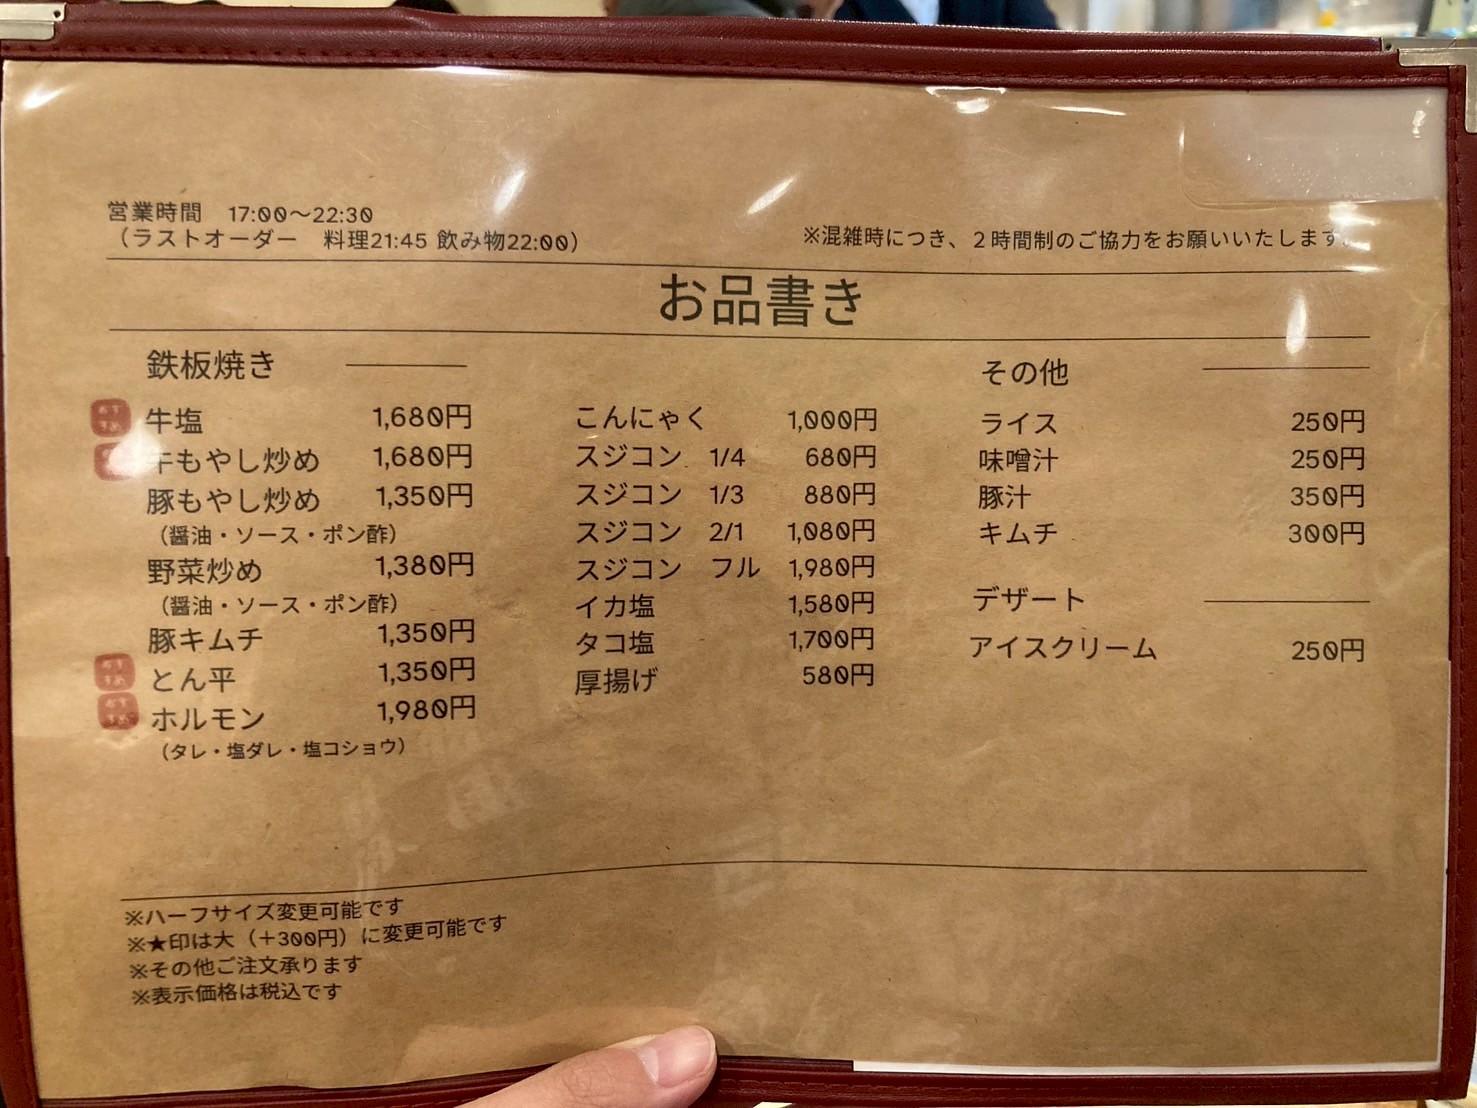 営業時間　17:00〜22:30
（ラストオーダー　料理21:45 飲み物22:00）
※混雑時につき、２時間制のご協力をお願いいたします。
お品書き
鉄板焼き
おすすめ 牛塩 1,680円
牛もやし炒め 1,680円
豚もやし炒め 1,350円
（醤油・ソース・ポン酢）
野菜炒め 1,380円
（醤油・ソース・ポン酢）
豚キムチ 1,350円
おすすめ とん平 1,350円
おすすめ ホルモン 1,980円
（タレ・塩ダレ・塩コショウ）
こんにゃく 1,000円
スジコン 1/4 680円
スジコン 1/3 880円
スジコン 2/1 1,080円
スジコン フル 1,980円
イカ塩 1,580円
タコ塩 1,700円
厚揚げ 580円
その他
ライス 250円
味噌汁 250円
豚汁 350円
キムチ 300円
デザート
アイスクリーム 250円
※ハーフサイズ変更可能です
※★印は大（＋300円）に変更可能です
※その他ご注文承ります
※表示価格は税込です